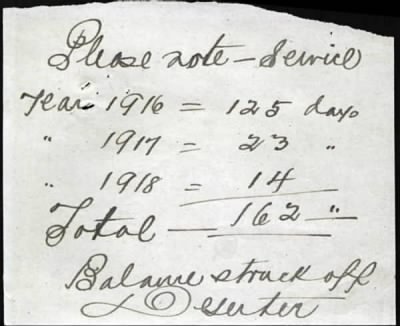 Please note - Service
Year 1916 = 125 days
" 1917 = 23 "
" 1918 = 14
Total — 162 "
Balance struck off
Deserter